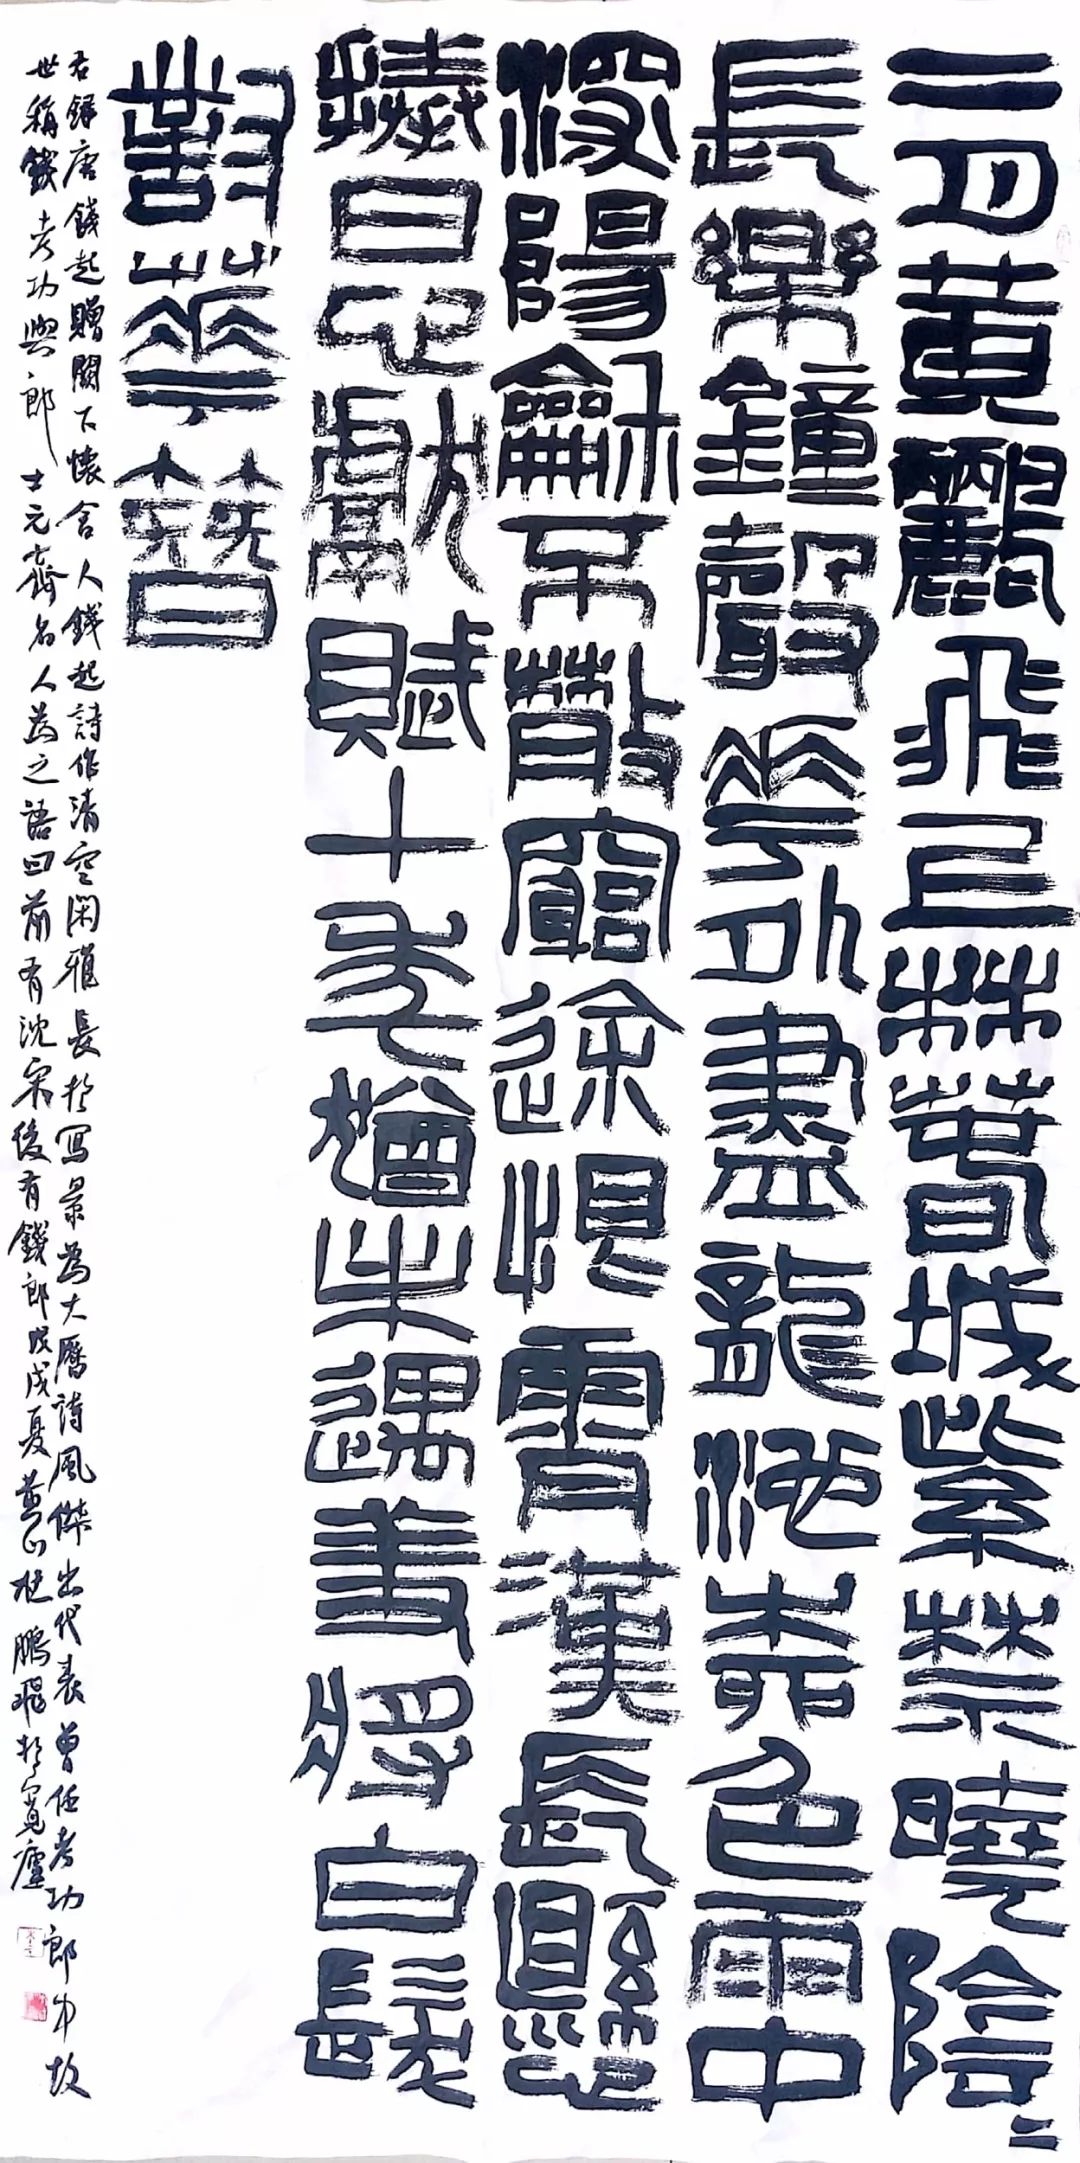 二月黃鸝飛上林春城紫禁曉陰二
長樂鐘聲華外盡龍池柳色雨中
深陽龢不散窮途恨霄漢長懸
捧日心獻賦十年猶未遇羞將白髮
對華簪
右錄唐錢起贈闕下懷舍人錢起詩作清空閑雅長於寫景為大曆詩風傑出代表曾任考功郎中故
世稱錢考功與郎士元齊名人為之語曰前有沈宋後有錢郎戊戌夏黃山杜鵬飛於寬廬